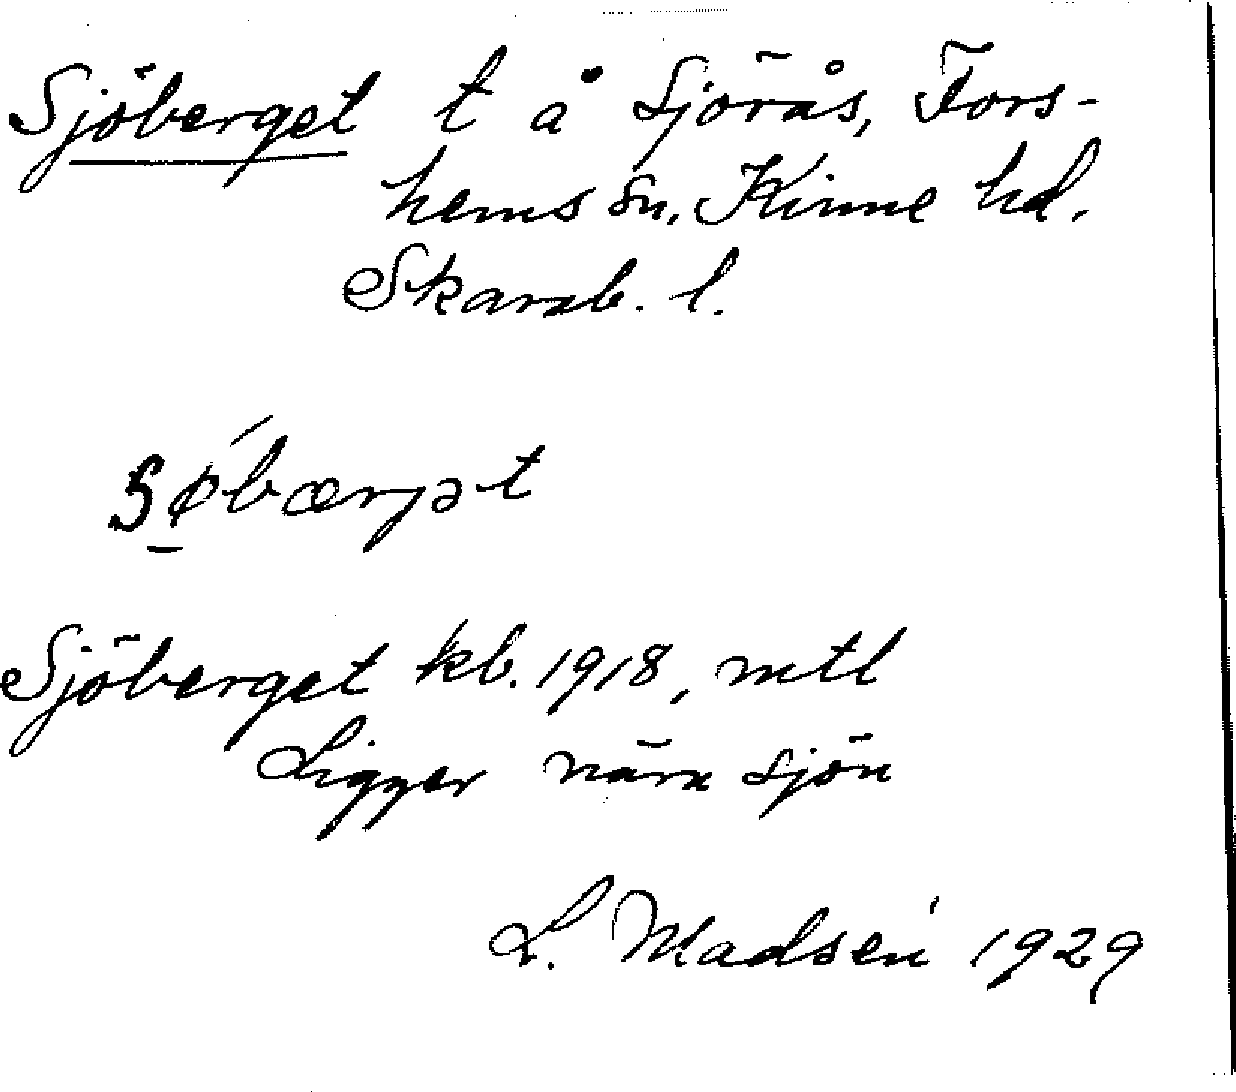 Sjöberget t å Sjörås, Fors-
hems sn, Kinne hd,
Skarab. l.
Sjöberget kb. 1918, mtl
Ligger nära sjön
L. Madsén 1929